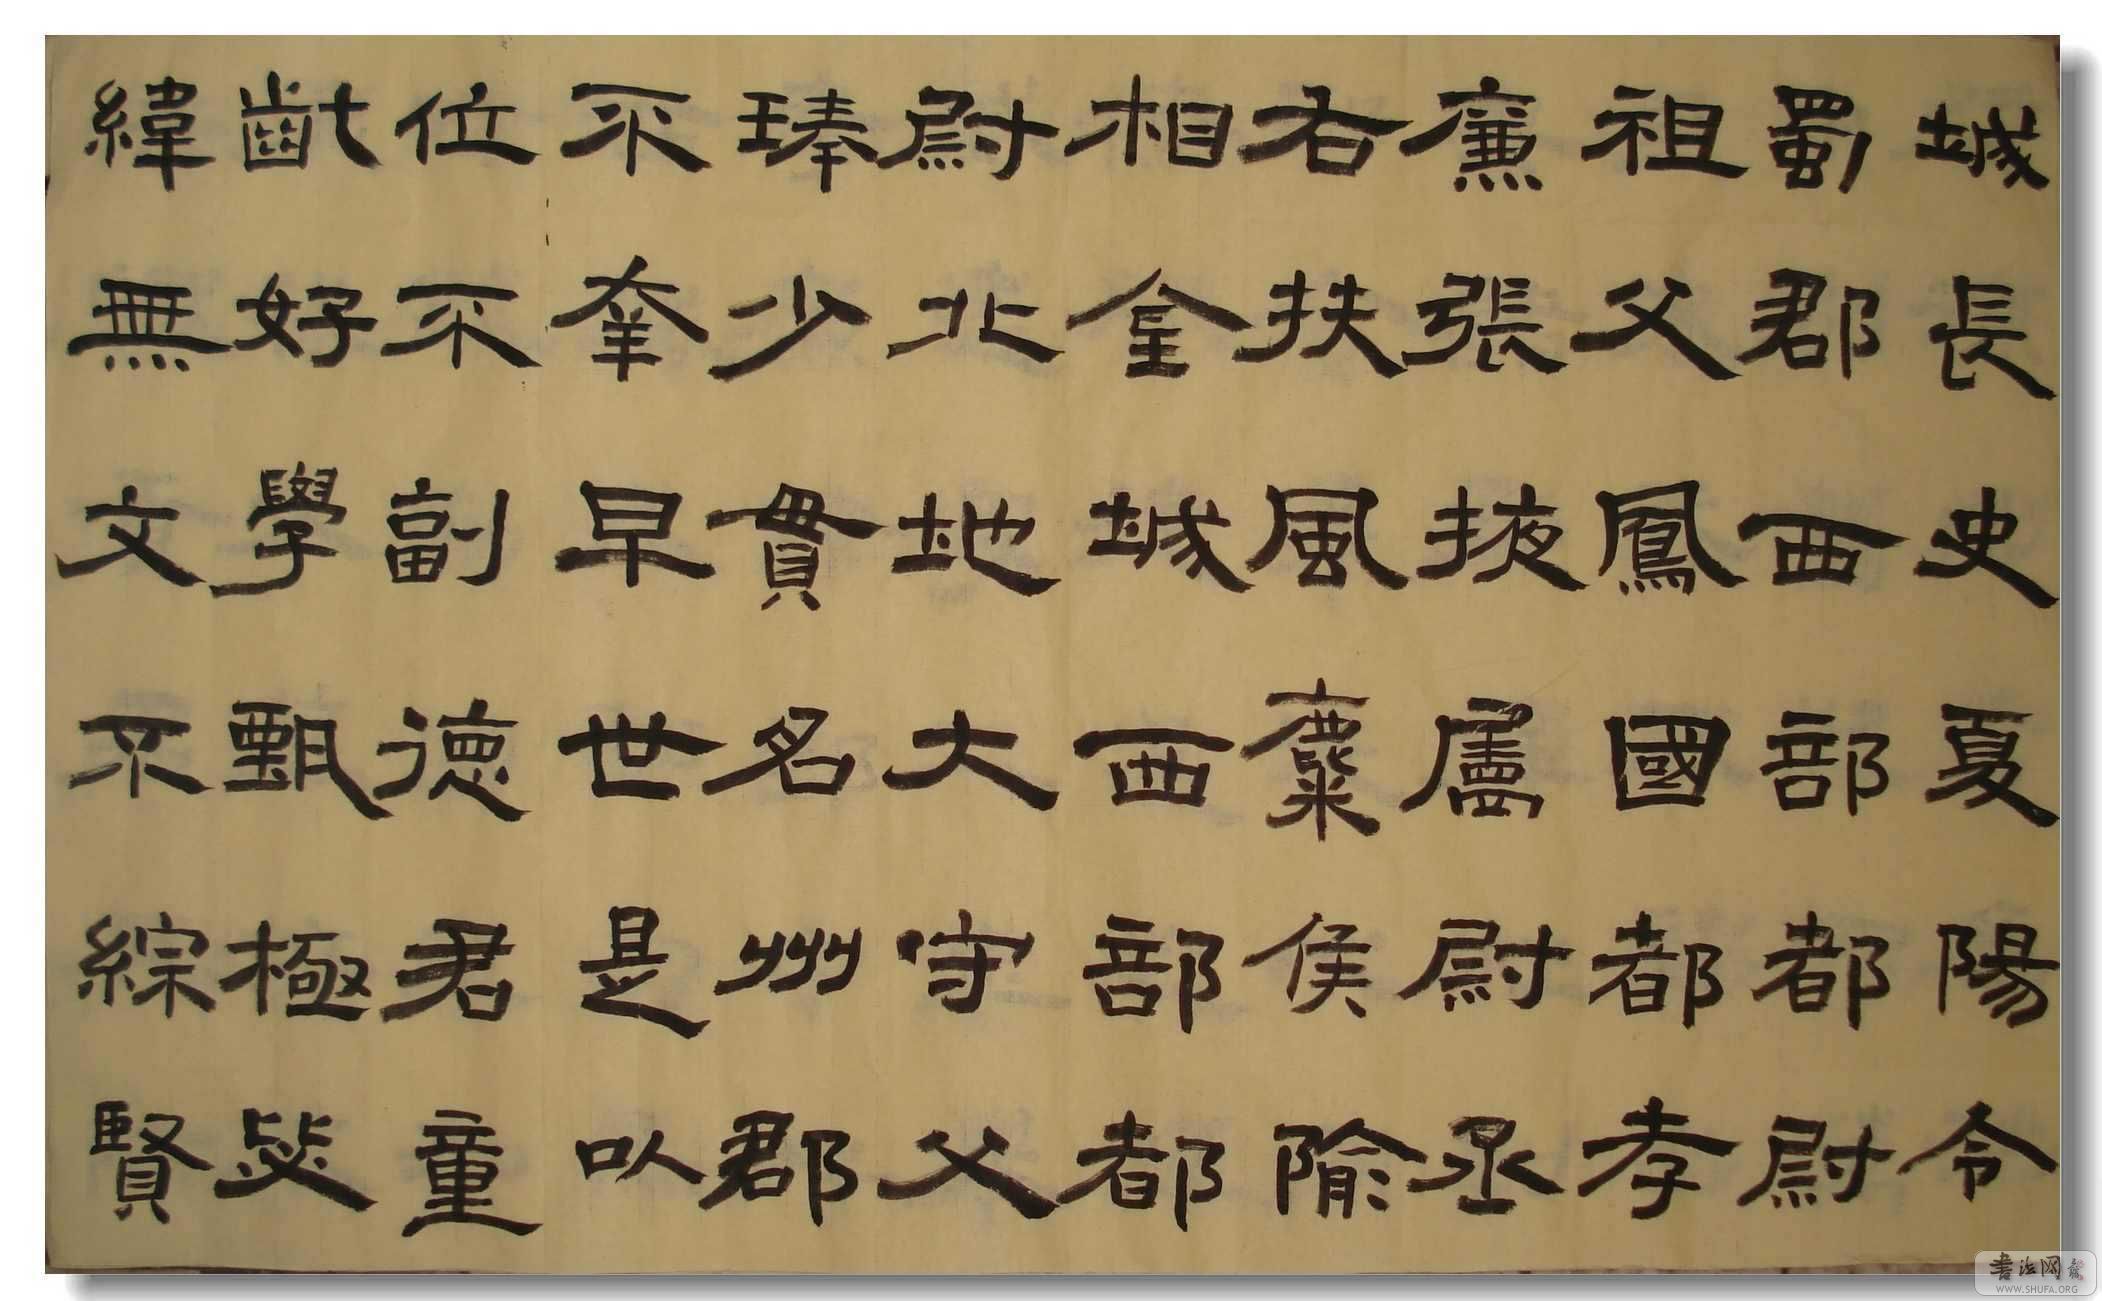 城長史夏陽令
蜀郡西部都尉
祖父鳳國都孝
廉張掖屬尉丞
右扶風隃麋侯
相金城西部都
尉北地大守父
琫少貫名州郡
不幸早世是以
位不副德君童
齔好學甄極毖
緯無文不綜賢
书法网
WWW.SHUFA.ORG